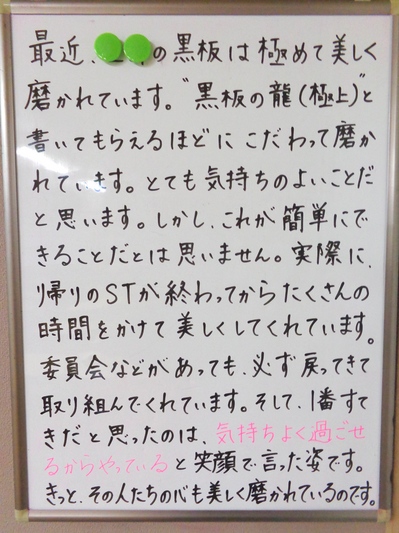 最近、の黒板は極めて美しく
磨かれています。"黒板の龍(極上)"と
書いてもらえるほどにこだわって磨か
れています。とても気持ちのよいことだ
と思います。しかし、これが簡単にで
きることだとは思いません。実際に、
帰りのSTが終わってからたくさんの
時間をかけて美しくしてくれています。
委員会などがあっても、必ず戻ってきて
取り組んでくれています。そして、1番すて
きだと思ったのは、気持ちよく過ごせ
るからやっていると笑顔で言った姿です。
きっと、その人たちの心も美しく磨かれているのです。